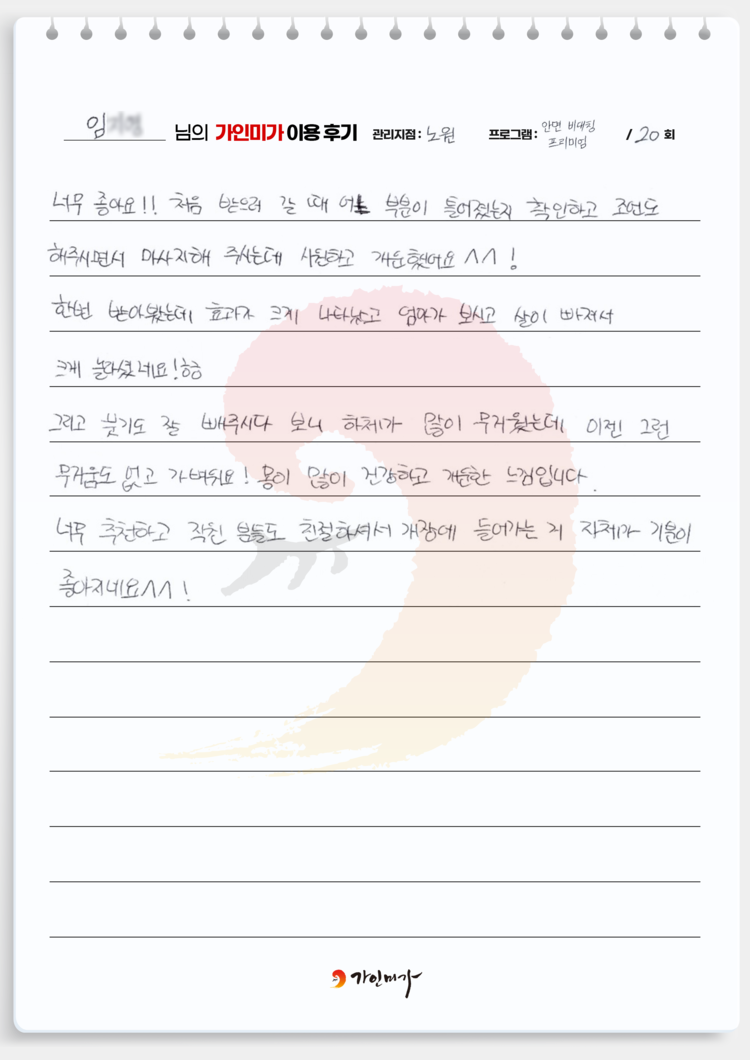 임 님의 가인미가 이용 후기 관리지점 : 노원 프로그램 : 안면 비대칭 프리미엄 / 20 회
너무 좋아요!! 처음 받으러 갈 때 어느 부분이 틀어졌는지 확인하고 조언도
해주시면서 마사지해 주시는데 시원하고 개운했어요 ^^ !
한번 받아봤는데 효과가 크게 나타났고 엄마가 보시고 살이 빠져서
크게 놀라셨네요!ㅎㅎ
그리고 붓기도 잘 빼주시다 보니 하체가 많이 무거웠는데 이젠 그런
무거움도 없고 가벼워요! 몸이 많이 건강하고 개운한 느낌입니다.
너무 추천하고 직원 분들도 친절하셔서 매장에 들어가는 거 자체가 기분이
좋아지네요^^ !
가인미가